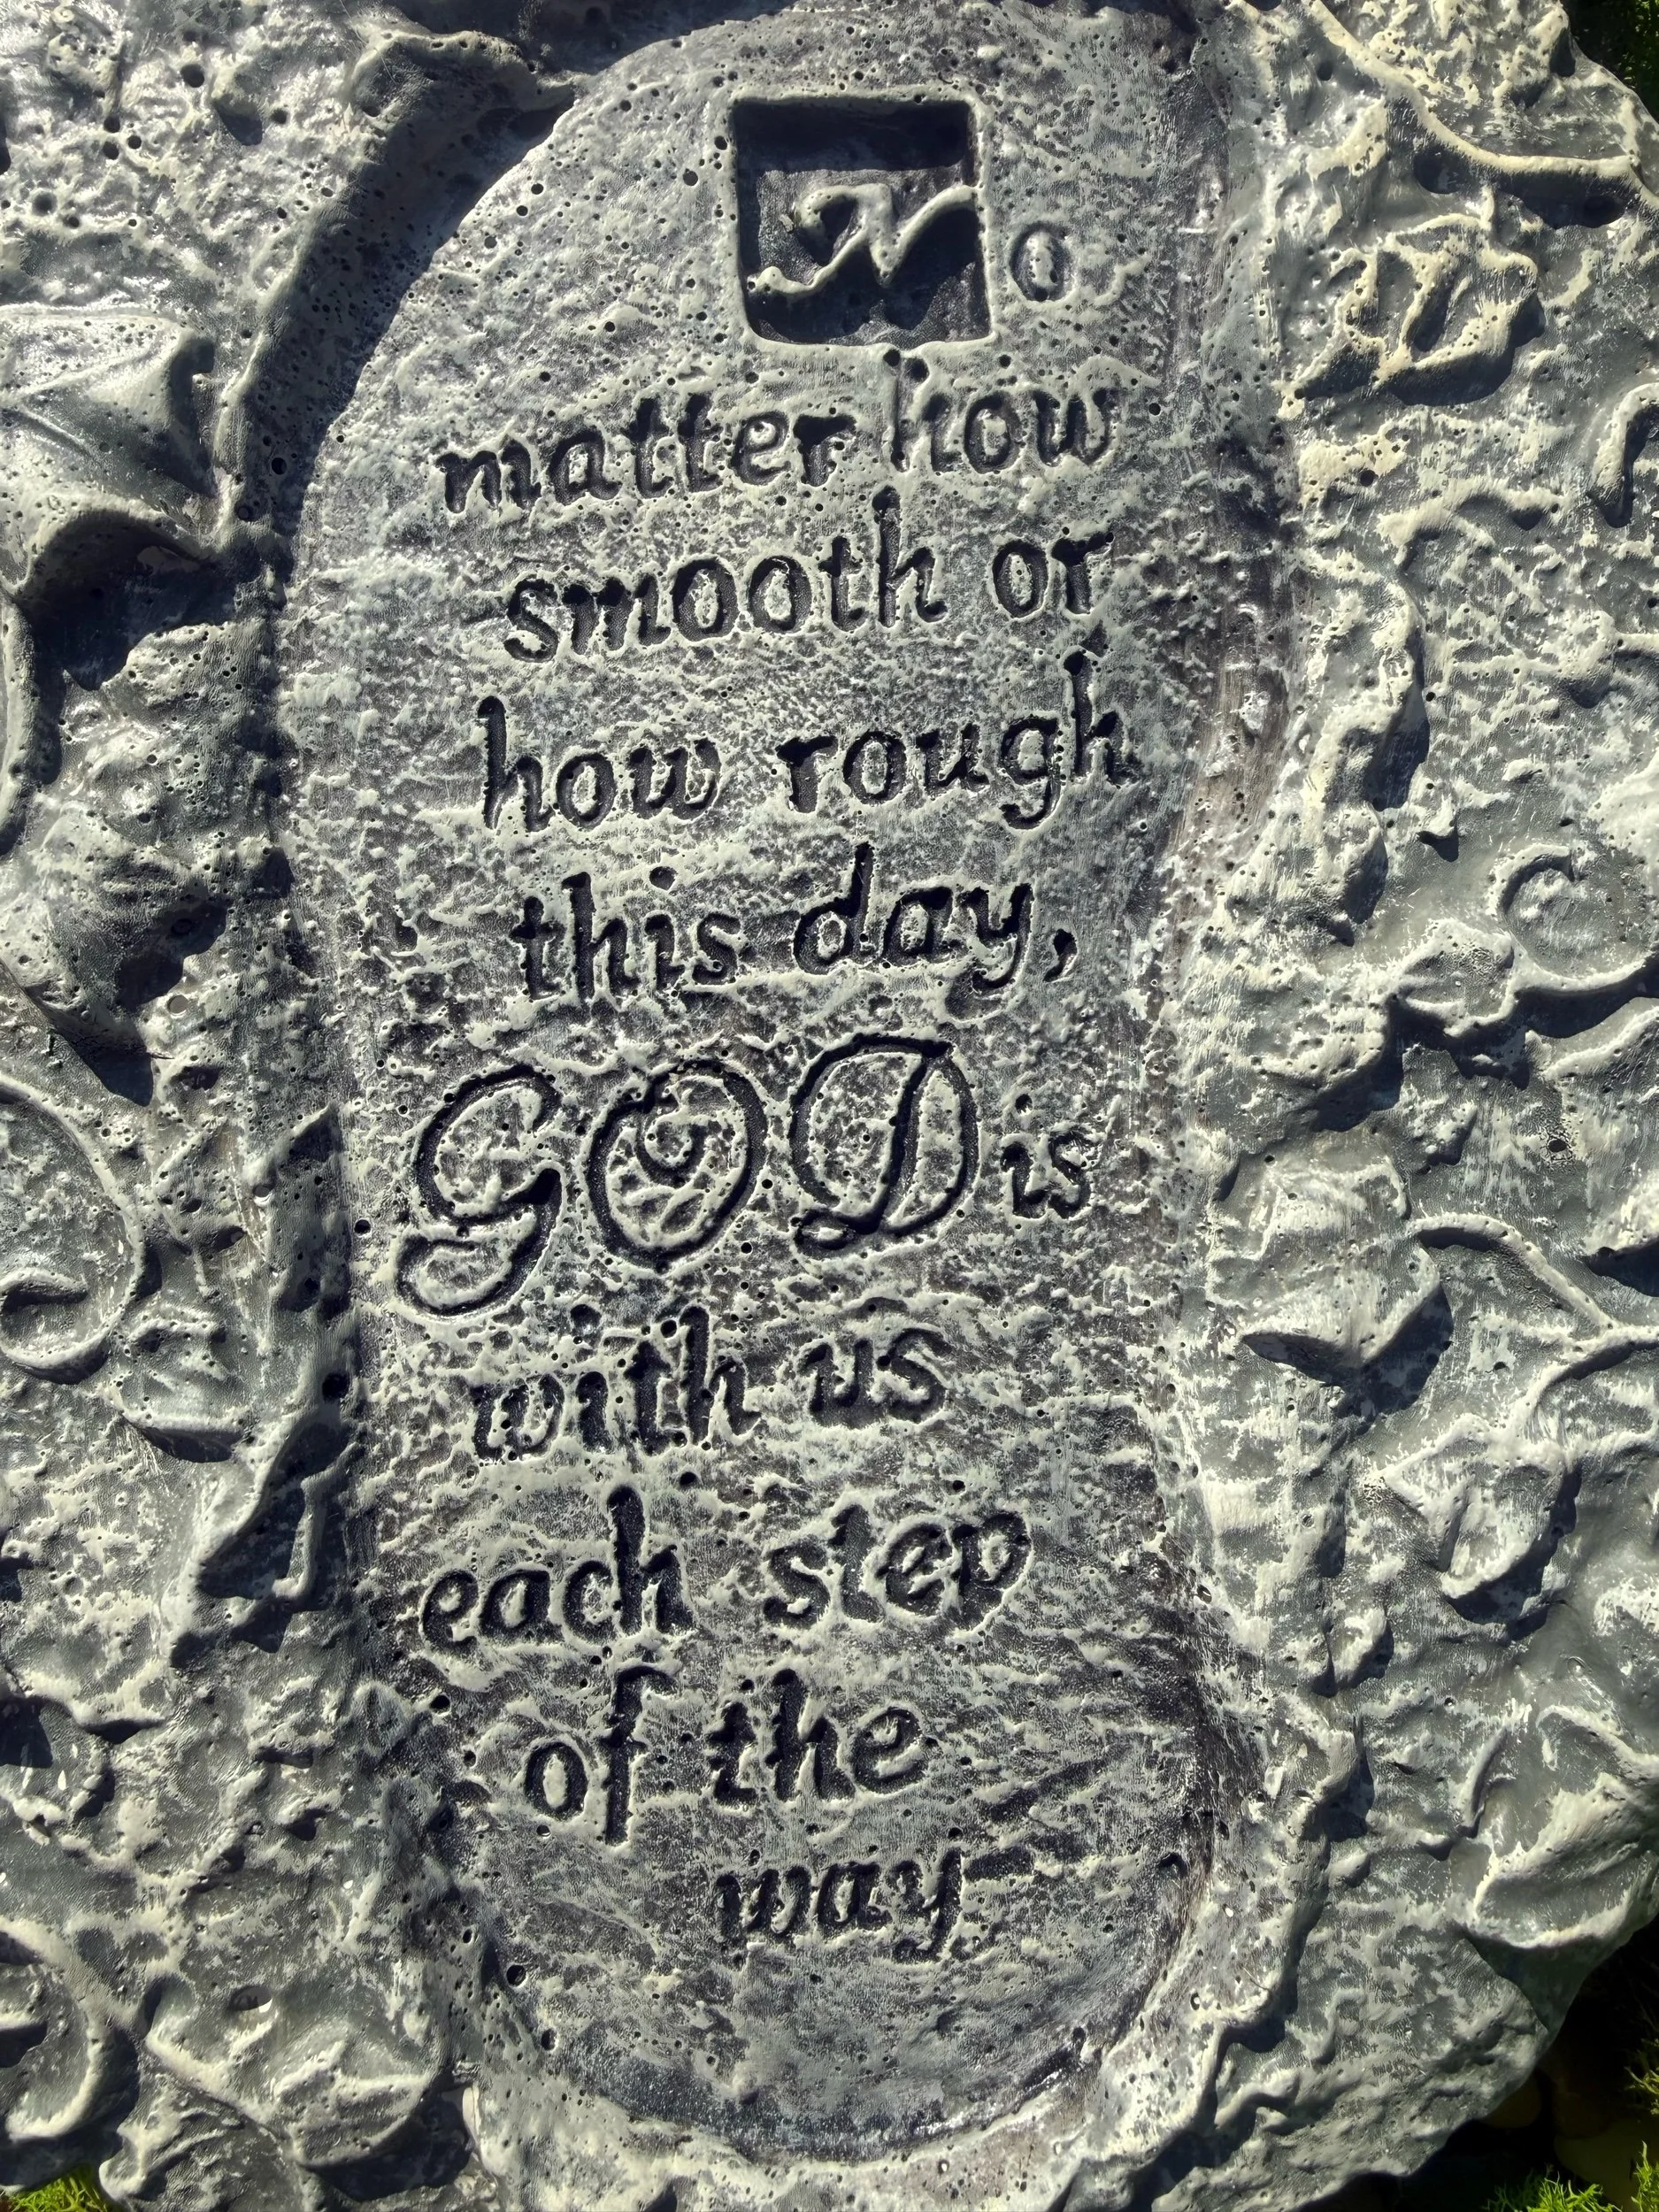 No
matter how
smooth or
how rough
this day,
GOD is
with us
each step
of the
way